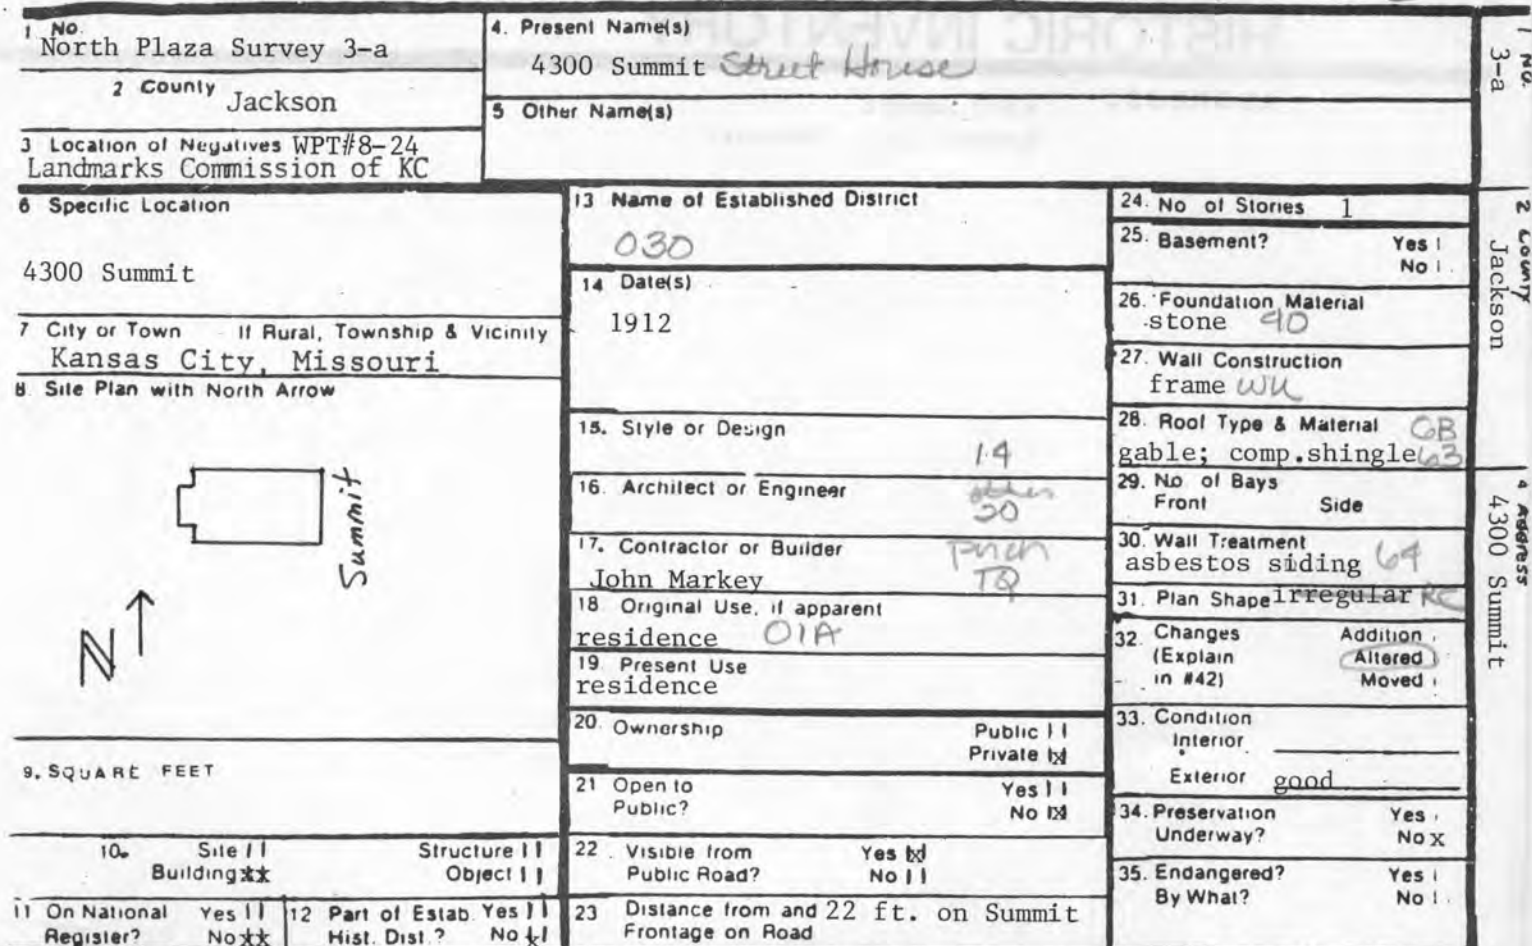 1 No.
North Plaza Survey 3-a
2 County
Jackson
3 Location of Negatives WPT#8-24
Landmarks Commission of KC
4. Present Name(s)
4300 Summit Street House
5 Other Name(s)
6 Specific Location
4300 Summit
7 City or Town If Rural, Township & Vicinity
Kansas City, Missouri
8. Site Plan with North Arrow
Summit
N
9. SQUARE FEET
10. Site Structure
Building xx Object
11 On National Yes
Register? No xx
12 Part of Estab. Yes
Hist. Dist.? No x
13 Name of Established District
030
14 Date(s)
1912
15. Style or Design
14
16. Architect or Engineer
20
17. Contractor or Builder
John Markey
TQ
18 Original Use, if apparent
residence 01A
19. Present Use
residence
20. Ownership Public
Private x
21 Open to Yes
Public? No x
22. Visible from Yes x
Public Road? No
23 Distance from and 22 ft. on Summit
Frontage on Road
24. No of Stories 1
25. Basement? Yes
No
26. Foundation Material
stone 40
27. Wall Construction
frame
28. Roof Type & Material GB
gable; comp.shingle 63
29. No of Bays
Front Side
30. Wall Treatment
asbestos siding 64
31. Plan Shape irregular RC
32. Changes Addition
(Explain Altered
in #42) Moved
33. Condition
Interior
Exterior good
34. Preservation Yes
Underway? No x
35. Endangered? Yes
By What? No
1 No.
3-a
2 County
Jackson
4 Address
4300 Summit
HISTORIC INVENTORY